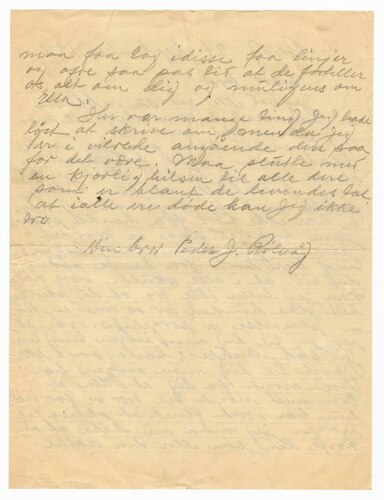 maa faa tag idisse faa linjer
og ofre saa pas tid at de fortiller
os alt om dig og muligens om
Ella.
Her var mange ting Jeg hade
løst at skrive om, men da Jeg
er i vilrede angaaende din saa
faar det være. Maa slutte med
en kjærlig hilsen til alle dere
som er blant de levendes tal
at ialle ere døde kan Jeg ikke
tro
Din bror Peder J. Rölvåg